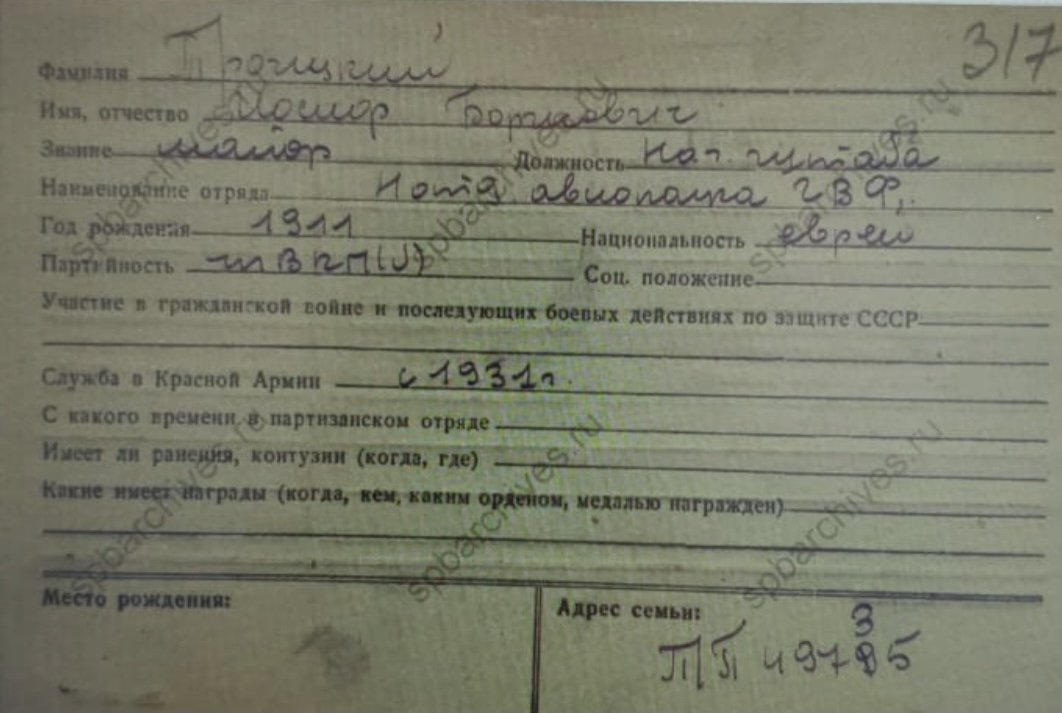 317
Фамилия Процкий
Имя, отчество Борисович
Звание майор Должность Нач. штаба
Наименование отряда авиополка ГВФ.
Год рождения 1911 Национальность еврей
Партийность чл ВКП(б) Соц. положение
Участие в гражданской войне и последующих боевых действиях по защите СССР
Служба в Красной Армии с 1931 г.
С какого времени в партизанском отряде
Имеет ли ранения, контузии (когда, где)
Какие имеет награды (когда, кем, каким орденом, медалью награжден)
Место рождения:
Адрес семьи:
3
П/П 49785
spbarchives.ru
spbarchives.ru
spbarchives.ru
spbarchives.ru
spbarchives.ru
spbarchives.ru